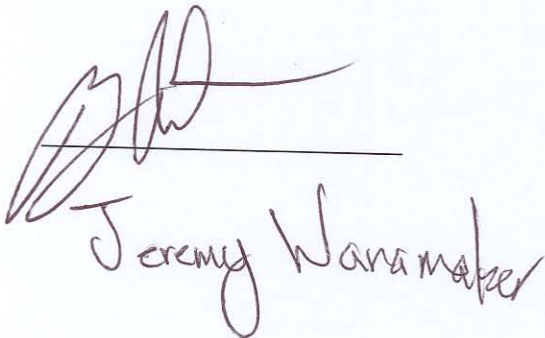 Jeremy Wanamaker